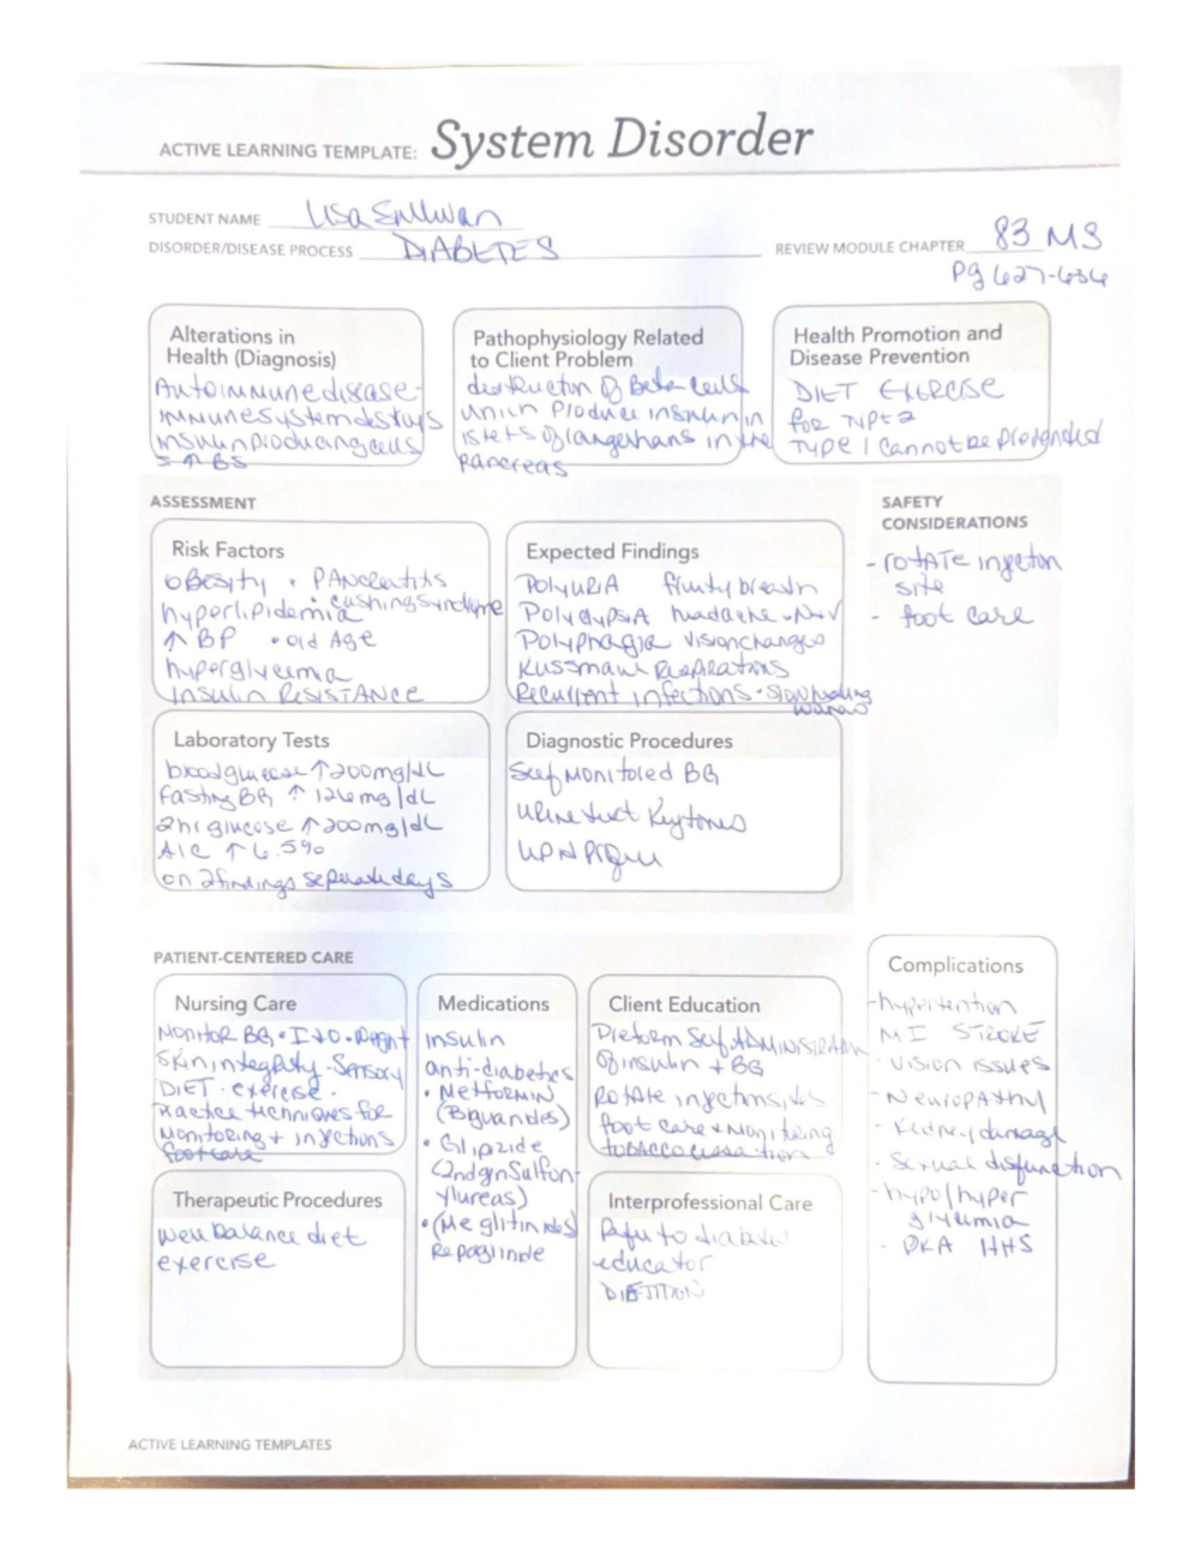 ACTIVE LEARNING TEMPLATE: System Disorder
STUDENT NAME Lisa Sullivan
DISORDER/DISEASE PROCESS DIABETES
REVIEW MODULE CHAPTER 83 MS
Pg 627-636
Alterations in
Health (Diagnosis)
Autoimmune disease-
immune system destroys
insulin producing cells
= ↑ BS
Pathophysiology Related
to Client Problem
destruction of Beta cells
which produce insulin in
islets of langerhans in the
pancreas
Health Promotion and
Disease Prevention
DIET EXERCISE
for TYPE 2
TYPE 1 cannot be prevented
ASSESSMENT
Risk Factors
obesity • PANcreatitis
hyperlipidemia • cushing syndrome
↑ BP • old Age
hyperglycemia
Insulin RESISTANCE
Expected Findings
POLYURIA fruity breath
Polydypsia headache • N+V
Polyphagia vision changes
Kussmaul Respirations
Recurrent infections • slow healing
wounds
SAFETY
CONSIDERATIONS
- rotATE injection
site
- foot care
Laboratory Tests
blood glucose ↑ 200 mg/dL
Fasting BG ↑ 126 mg/dL
2hr glucose ↑ 200 mg/dL
A1C ↑ 6.5%
on 2 findings separate days
Diagnostic Procedures
Self Monitored BG
Urine test Keytones
Lipid
PATIENT-CENTERED CARE
Nursing Care
MONITOR BG • I+O • weight
Skin integrity • Sensory
DIET • exercise •
Practice techniques for
Monitoring + injections
footcare
Medications
insulin
anti-diabetics
• METFORMIN
(Biguanides)
• Glipizide
(2nd gn Sulfon-
ylureas)
• (Meglitinides)
Repaglinide
Client Education
Self ADMINISTRATION
of insulin + BG
Rotate injection sites
foot care + monitoring
tobacco cessation
Complications
- hypertention
MI STROKE
- vision issues
- Neuropathy
- Kidney damage
- Sexual disfunction
- hypo/hyper
glycemia
- DKA HHS
Therapeutic Procedures
well balance diet
exercise
Interprofessional Care
Refer to diabetes
educator
DIETITION
ACTIVE LEARNING TEMPLATES